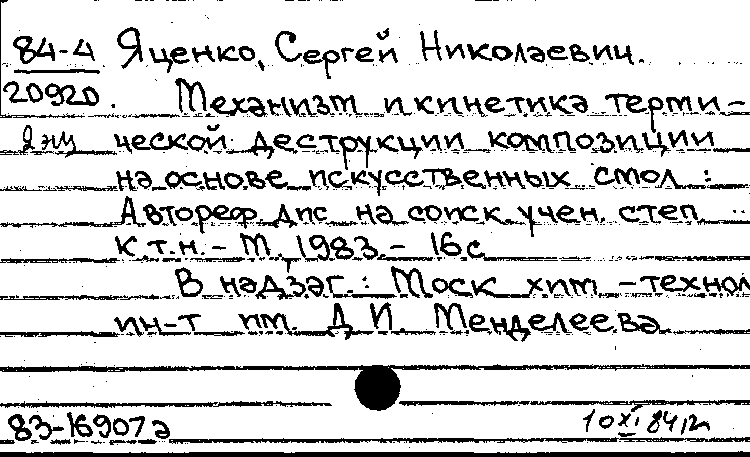 84-4 Яценко, Сергей Николаевич.
20920. Механизм и кинетика терми-
2 экз ческой деструкции композиции
на основе искусственных смол :
Автореф. дис. на соиск. учен. степ.
к.т.н. - М., 1983. - 16 с.
В надзаг.: Моск. хим. - технол
ин-т им. Д. И. Менделеева.
83-16907а
10 XI 84